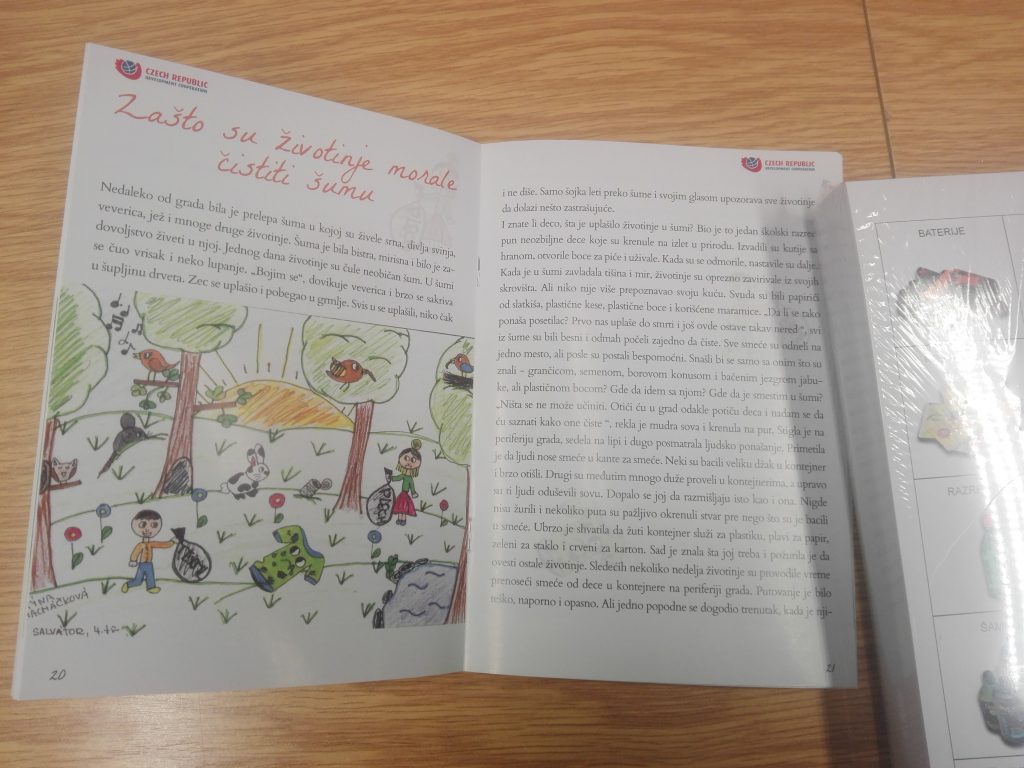 CZECH REPUBLIC
DEVELOPMENT COOPERATION
Zašto su životinje morale
čistiti šumu
Nedaleko od grada bila je prelepa šuma u kojoj su živele srna, divlja svinja,
veverica, jež i mnoge druge životinje. Šuma je bila bistra, mirisna i bilo je za-
dovoljstvo živeti u njoj. Jednog dana životinje su čule neobičan šum. U šumi
se čuo vrisak i neko lupanje. „Bojim se“, dovikuje veverica i brzo se sakriva
u šupljinu drveta. Zec se uplašio i pobegao u grmlje. Svi s u se uplašili, niko čak
SALVATOR, 4.
20
CZECH REPUBLIC
DEVELOPMENT COOPERATION
i ne diše. Samo šojka leti preko šume i svojim glasom upozorava sve životinje
da dolazi nešto zastrašujuće.
I znate li deco, šta je uplašilo životinje u šumi? Bio je to jedan školski razred
pun neozbiljne dece koje su krenule na izlet u prirodu. Izvadili su kutije sa
hranom, otvorile boce za piće i uživale. Kada su se odmorile, nastavile su dalje.
Kada je u šumi zavladala tišina i mir, životinje su oprezno zavirivale iz svojih
skrovišta. Ali niko nije više prepoznavao svoju kuću. Svuda su bili papirići
od slatkiša, plastične kese, plastične boce i korišćene maramice. „Da li se tako
ponaša posetilac? Prvo nas uplaše do smrti i još ovde ostave takav nered “, svi
iz šume su bili besni i odmah počeli zajedno da čiste. Sve smeće su odneli na
jedno mesto, ali posle su postali bespomoćni. Snašli bi se samo sa onim što su
znali – grančicom, semenom, borovom konusom i bačenim jezgrom jabu-
ke, ali plastičnom bocom? Gde da idem sa njom? Gde da je smestim u šumi?
„Ništa se ne može učiniti. Otići ću u grad odakle potiču deca i nadam se da
ću saznati kako one čiste “, rekla je mudra sova i krenula na put. Stigla je na
periferiju grada, sedela na lipi i dugo posmatrala ljudsko ponašanje. Primetila
je da ljudi nose smeće u kante za smeće. Neki su bacili veliku džak u kontejner
i brzo otišli. Drugi su međutim mnogo duže proveli u kontejnerima, a upravo
su ti ljudi oduševili sovu. Dopalo se joj da razmišljaju isto kao i ona. Nigde
nisu žurili i nekoliko puta su pažljivo okrenuli stvar pre nego što su je bacili
u smeće. Ubrzo je shvatila da žuti kontejner služi za plastiku, plavi za papir,
zeleni za staklo i crveni za karton. Sad je znala šta joj treba i požurila je da
ovesti ostale životinje. Sledećih nekoliko nedelja životinje su provodile vreme
prenoseći smeće od dece u kontejnere na periferiji grada. Putovanje je bilo
teško, naporno i opasno. Ali jedno popodne se dogodio trenutak, kada je nji-
21
BATERIJE